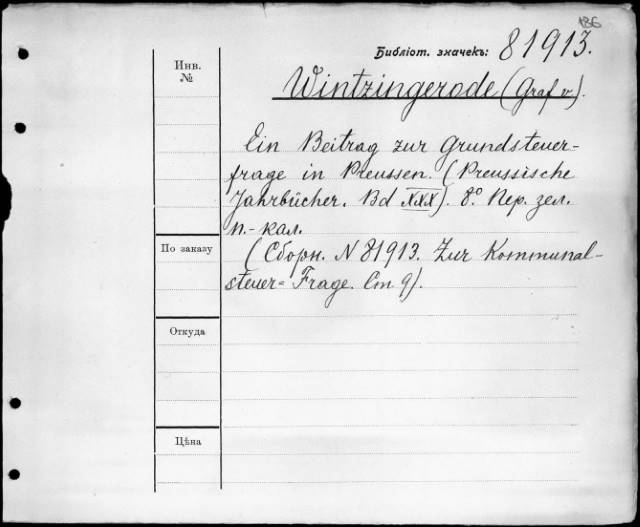 186
Библіот. значекъ: 81913.
Инв. №
Wintzingerode (Graf v.).
Ein Beitrag zur Grundsteuer-
frage in Preussen. (Preussische
Jahrbücher. Bd XXX). 8° Пер. зел.
п.-кал.
По заказу
(Сборн. N 81913. Zur Kommunal-
steuer= Frage. Ст 9).
Откуда
Цѣна